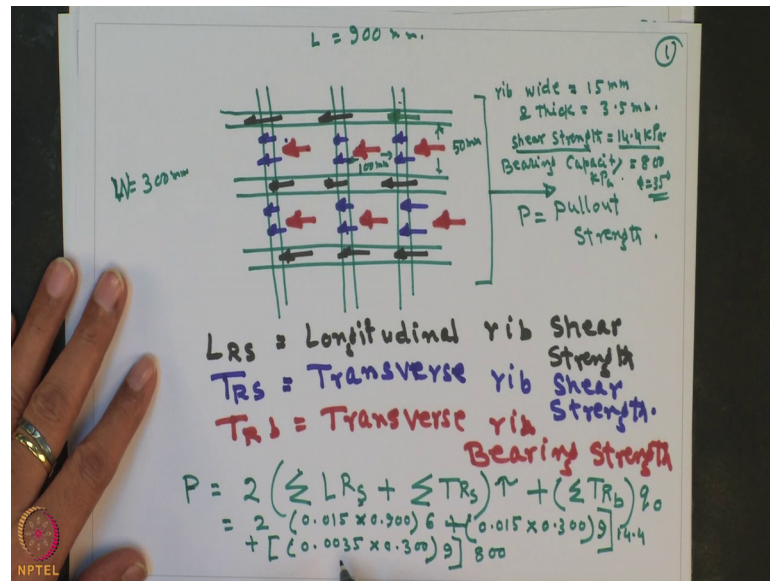 L = 900 mm.
1
rib wide = 15 mm
& thick = 3.5 mm.
shear strength = 14.4 kPa.
Bearing Capacity = 800
kPa.
50 mm
100 mm
W = 300 mm
P = Pullout
Strength.
LRS = Longitudinal rib shear
Strength
TRS = Transverse rib shear
Strength.
TRb = Transverse rib
Bearing Strength
P = 2 (∑ LRS + ∑ TRS) τ + (∑ TRb) q0
= 2 (0.015 x 0.900) 6 + (0.015 x 0.300) 9] 14.4
+ [(0.0035 x 0.300) 9] 800
NPTEL